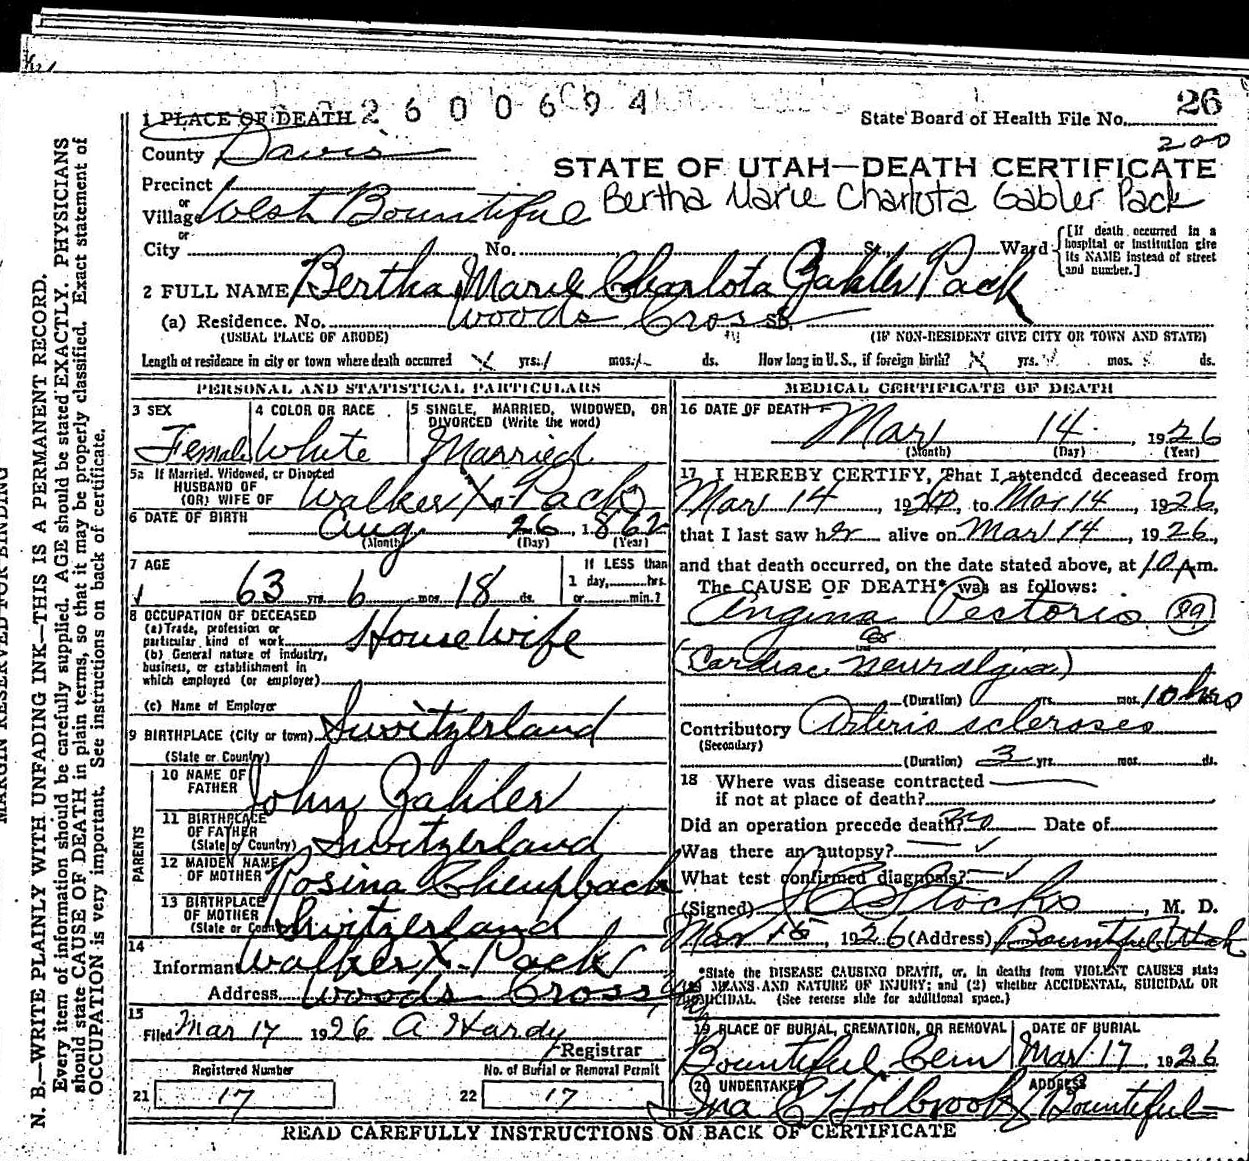 2600694
1 PLACE OF DEATH
State Board of Health File No. 26
200
County Davis
STATE OF UTAH—DEATH CERTIFICATE
Precinct
or
Village West Bountiful
Bertha Marie Charlota Gabler Pack
or
City No. St. Ward
[If death occurred in a hospital or institution give its NAME instead of street and number.]
2 FULL NAME Bertha Marie Charlota Zahler Pack
(a) Residence. No. Woods Cross St.
(USUAL PLACE OF ABODE) (IF NON-RESIDENT GIVE CITY OR TOWN AND STATE)
Length of residence in city or town where death occurred yrs. mos. ds. How long in U.S., if foreign birth? yrs. mos. ds.
PERSONAL AND STATISTICAL PARTICULARS
3 SEX
Female
4 COLOR OR RACE
White
5 SINGLE, MARRIED, WIDOWED, OR DIVORCED (Write the word)
Married
5a If Married, Widowed, or Divorced
HUSBAND OF
(OR) WIFE OF Walker X. Pack
6 DATE OF BIRTH Aug 26, 1862
(Month) (Day) (Year)
7 AGE
63 yrs. 6 mos. 18 ds.
If LESS than
1 day, hrs.
or min.?
8 OCCUPATION OF DECEASED
(a) Trade, profession or
particular kind of work Housewife
(b) General nature of industry,
business, or establishment in
which employed (or employer)
(c) Name of Employer
9 BIRTHPLACE (City or town) Switzerland
(State or Country)
PARENTS
10 NAME OF FATHER John Zahler
11 BIRTHPLACE OF FATHER Switzerland
(State or Country)
12 MAIDEN NAME OF MOTHER Rosina
13 BIRTHPLACE OF MOTHER Switzerland
(State or Country)
14
Informant Walker X. Pack
Address Woods Cross
15
Filed Mar 17 1926 A Hardy
Registrar
Registered Number
21 17
No. of Burial or Removal Permit
22 17
MEDICAL CERTIFICATE OF DEATH
16 DATE OF DEATH
Mar 14, 1926
(Month) (Day) (Year)
17 I HEREBY CERTIFY, That I attended deceased from
Mar 14, 1926, to Mar 14, 1926,
that I last saw her alive on Mar 14, 1926,
and that death occurred, on the date stated above, at 10 A.m.
The CAUSE OF DEATH* was as follows:
Angina Pectoris 89
or
(Cardiac neuralgia)
(Duration) yrs. mos. 10 hrs
Contributory Arterio scleroses
(Secondary)
(Duration) 3 yrs. mos. ds.
18 Where was disease contracted
if not at place of death?
Did an operation precede death? no Date of
Was there an autopsy?
What test confirmed diagnosis?
(Signed) Stocks, M. D.
Mar 16, 1926 (Address) Bountiful Utah
*State the DISEASE CAUSING DEATH, or, in deaths from VIOLENT CAUSES state
MEANS AND NATURE OF INJURY; and (2) whether ACCIDENTAL, SUICIDAL OR
HOMICIDAL. (See reverse side for additional space.)
19 PLACE OF BURIAL, CREMATION, OR REMOVAL
Bountiful Cem
DATE OF BURIAL
Mar 17 1926
20 UNDERTAKER
Holbrook
ADDRESS
Bountiful
READ CAREFULLY INSTRUCTIONS ON BACK OF CERTIFICATE
MARGIN RESERVED FOR BINDING
N. B.—WRITE PLAINLY WITH UNFADING INK—THIS IS A PERMANENT RECORD.
Every item of information should be carefully supplied. AGE should be stated EXACTLY. PHYSICIANS
should state CAUSE OF DEATH in plain terms, so that it may be properly classified. Exact statement of
OCCUPATION is very important. See instructions on back of certificate.